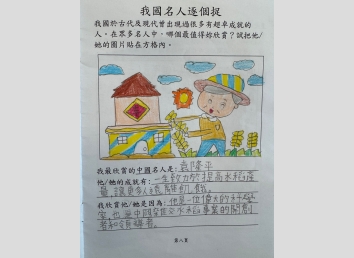 我國名人逐個捉
我國於古代及現代曾出現過很多有超卓成就的
人。在眾多名人中，哪個最值得妳欣賞？試把他/
她的圖片貼在方格內。
我最欣賞的中國名人是：袁隆平
他/她的成就有：一生致力於提高水稻產
量，讓更多人遠離飢餓。
我欣賞他/她是因為：他是一位偉大的科學
家，也是中國雜交水稻事業的開創
者和領導者。
第八頁